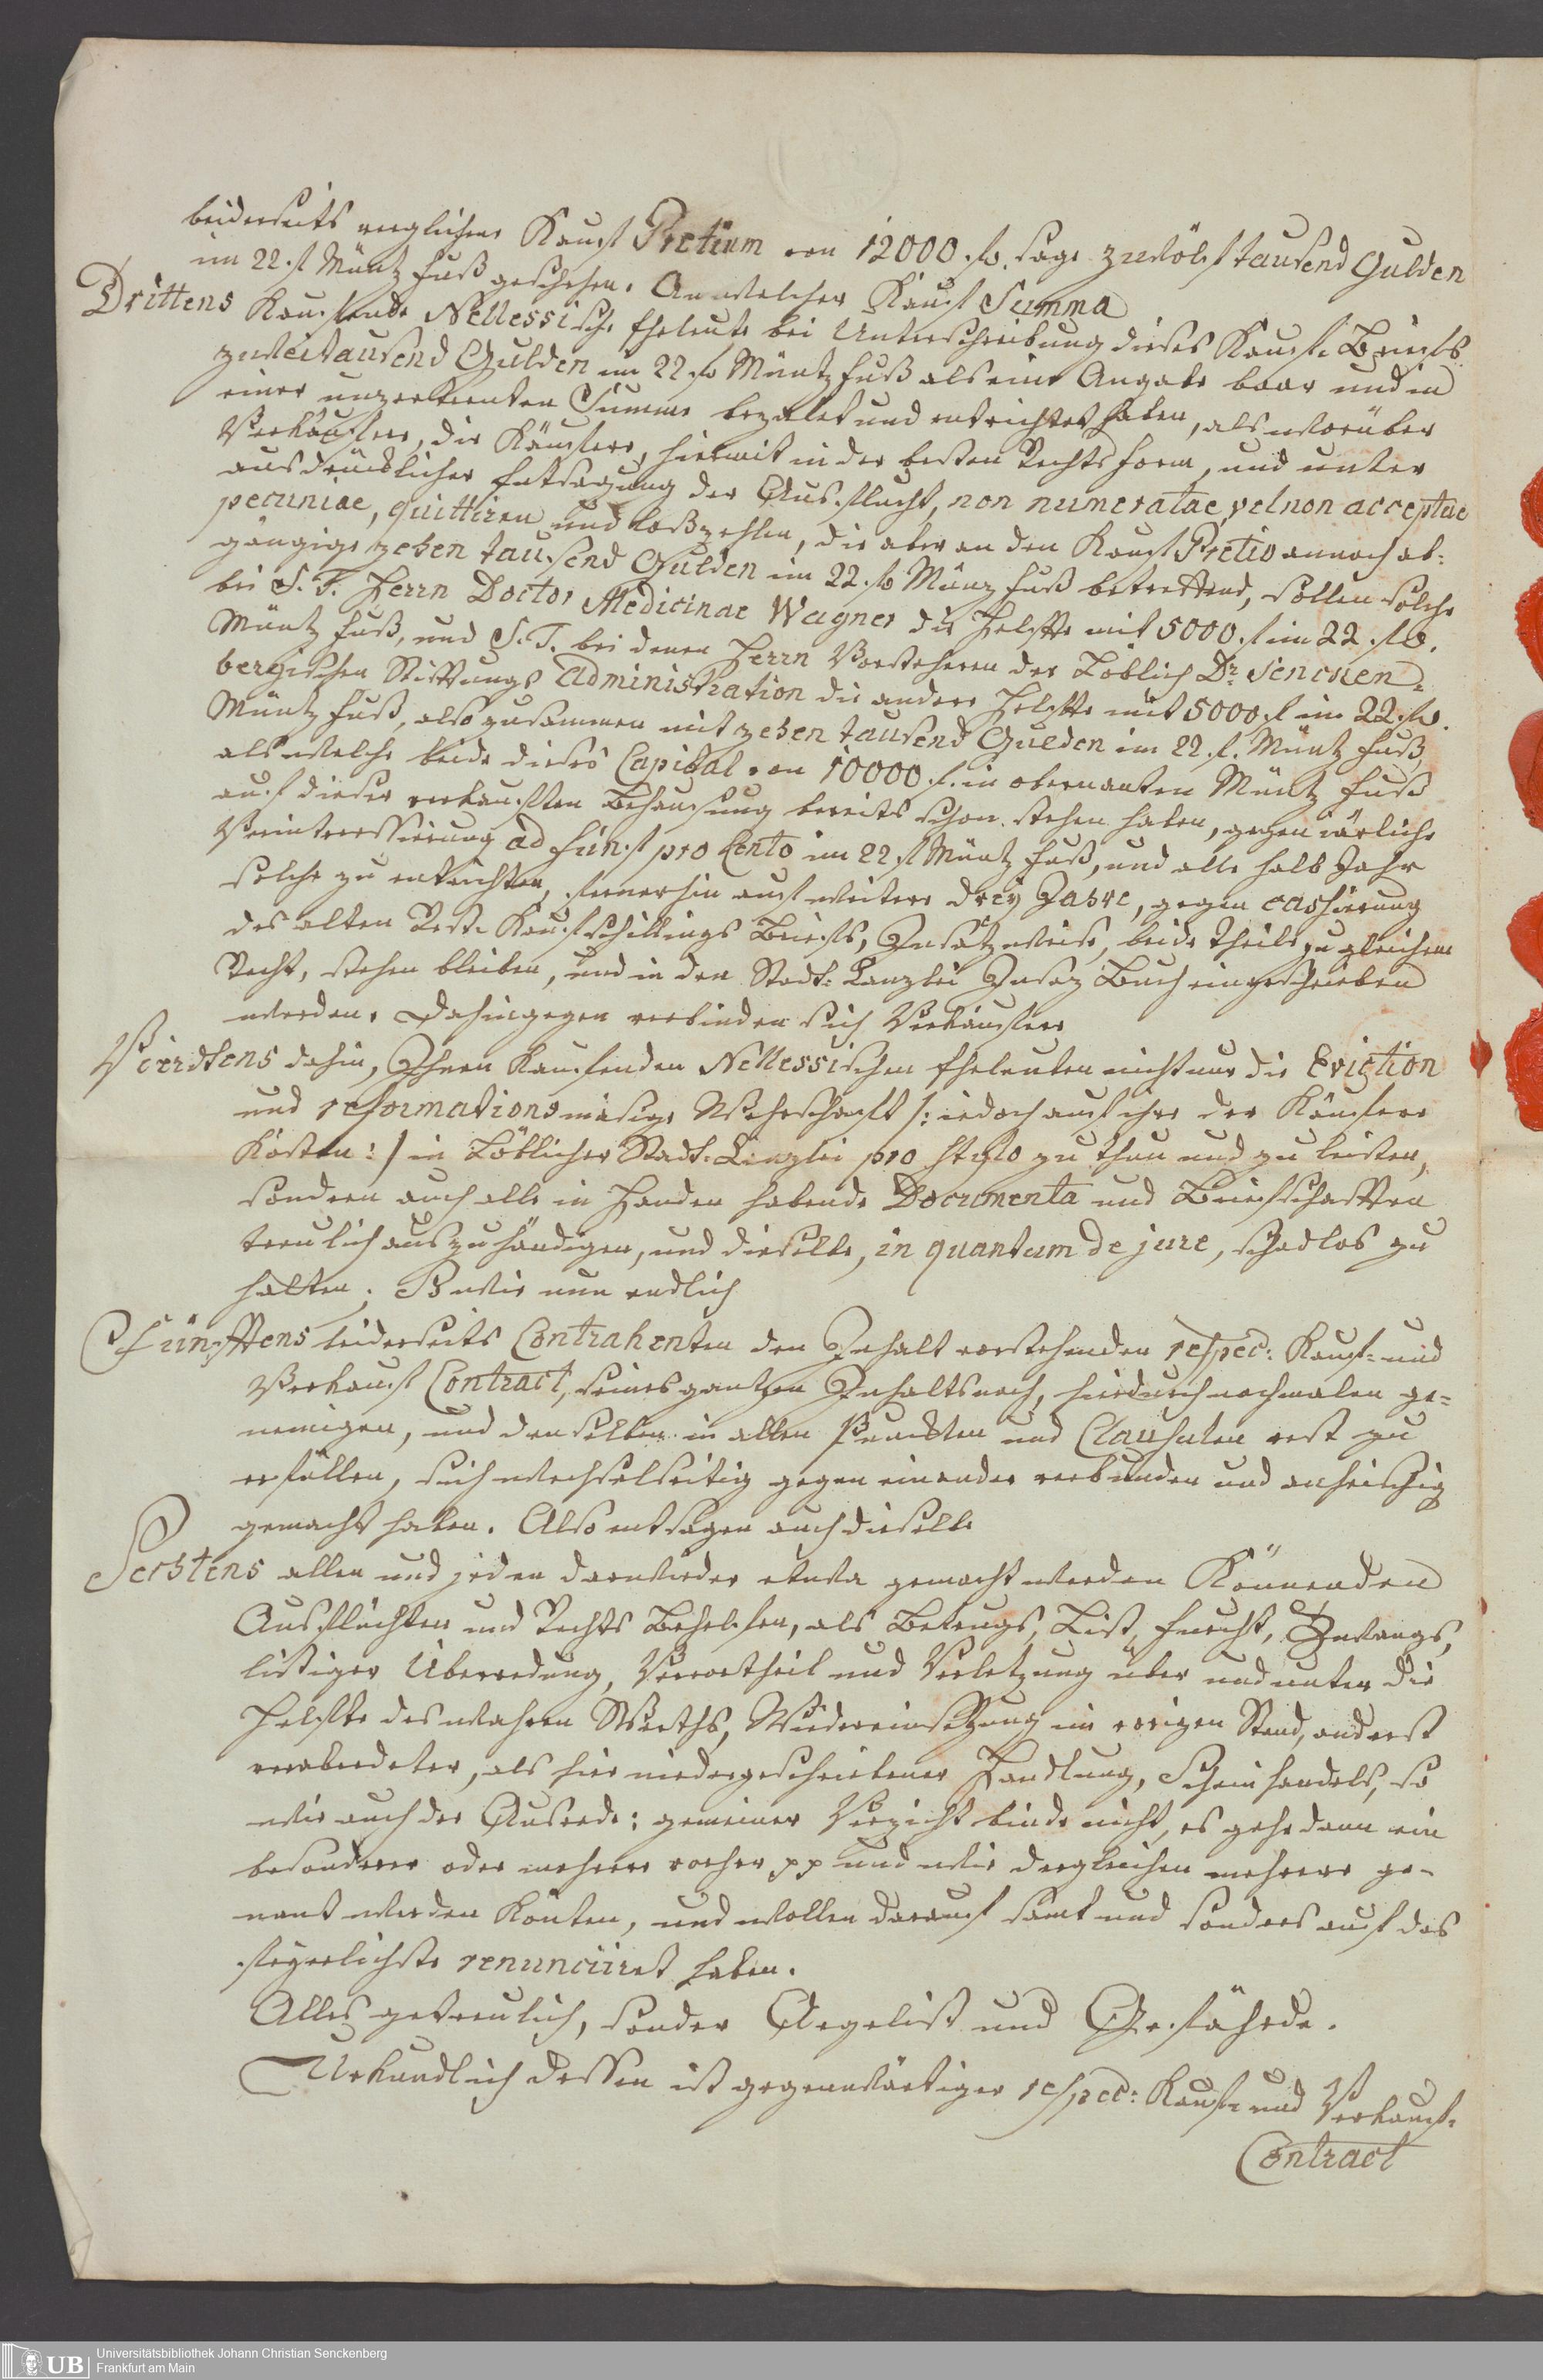 beiderseits verglichene Kauf Pretium von 12000. fl. sage zwölf tausend Gulden
im 22. fl Müntz Fuß geschehen. An welcher Kauf Summa
Drittens Kaufende Nellessische Eheleute bei Unterschreibung dieses Kauf-Briefs
zweitausend Gulden im 22 fl. Müntz Fuß als eine Angabe baar und in
einer unzertrenten Summe bezalet und entrichtet haben, als worüber
Verkäufere, die Käufere, hiermit in der besten Rechts Form, und unter
ausdrücklicher Entsagung der Ausflucht, non numeratae, vel non acceptae
pecuniae, quittiren und loßzehlen, die aber an den Kauf Pretio annoch ab-
gängige zehen tausend Gulden im 22. fl. Münz Fuß betreffend, sollen solche
bei S. T. Herrn Doctor Medicinae Wagner die Helffte mit 5000. fl im 22. fl.
Müntz Fuß, und S. T. bei denen Herrn Vorstehern der Löblich Dr. Sencken-
bergischen Stifftungs Administration die andere Helffte mit 5000. fl im 22. fl.
Müntz Fuß, also zusammen mit zehen tausend Gulden im 22. fl. Müntz Fuß,
als welche beide dieses Capital von 10000. fl. in obernanten Müntz Fuß
auf dieser verkaufften Behausung bereits schon stehen haben, gegen iärliche
Verinteressierung ad fünf pro Cento im 22. fl Müntz Fuß, und alle halb Jahr
solche zu entrichten, fernerhin auf weitere drey Jahre, gegen cassierung
des alten Rest-Kaufschillings Briefs, Insatzweise, beide Theile zu gleichem
Recht, stehen bleiben, und in den Stadt-Canzlei Insaz Buch eingeschrieben
werden. Dahingegen verbinden sich Verkäufere
Vierdtens dahin, Ihnen Kaufenden Nellessischen Eheleuten nicht nur die Eviction
und reformationsmäsige Wehrschafft /: iedoch auf ihre der Käufere
Kosten :/ in Löblicher Stadt-Canzlei pro stylo zu thun und zu leisten,
sondern auch alle in Handen habende Documenta und Briefschafften
treulich auszuhändigen, und dieselbe, in quantum de jure, schadlos zu
halten; So wie nun endlich
Fünfftens beiderseits Contrahenten den Inhalt vorstehenden respec: Kauf- und
Verkauf Contract, seines gantzen Inhalts nach, hierdurch nochmalen ge-
nemigen, und denselben in allen Puncten und Clausulen vest zu
erfüllen, sich wechselseitig gegen einander verbunden und anheischig
gemacht haben. Also entsagen auch dieselbe
Sechstens allen und jeden darwieder etwa gemacht werden Könnenden
Ausflüchten und Rechts Behelfen, als Betrugs, List, Furcht, Zwangs,
listiger Überredung, Vervortheil und Verletzung über und unter die
Helffte des wahren Werths, Wiedereinsetzung im vorigen Stand, anderst
verabredeter, als hier niedergeschriebener Handlung, Scheinhandels, so
wie auch der Ausrede: gemeiner Verzicht binde nicht, es gehe dann ein
besonderer oder mehrere vorher pp und wie dergleichen mehrere ge-
nant werden Könten, und wollen darauf samt und sonders auf das
feyerlichste renunciiret haben.
Alles getreulich, sonder Argelist und Gefährde.
Urkundlich dessen ist gegenwärtiger respec: Kauf- und Verkauf-
Contract
UB
Universitätsbibliothek Johann Christian Senckenberg
Frankfurt am Main